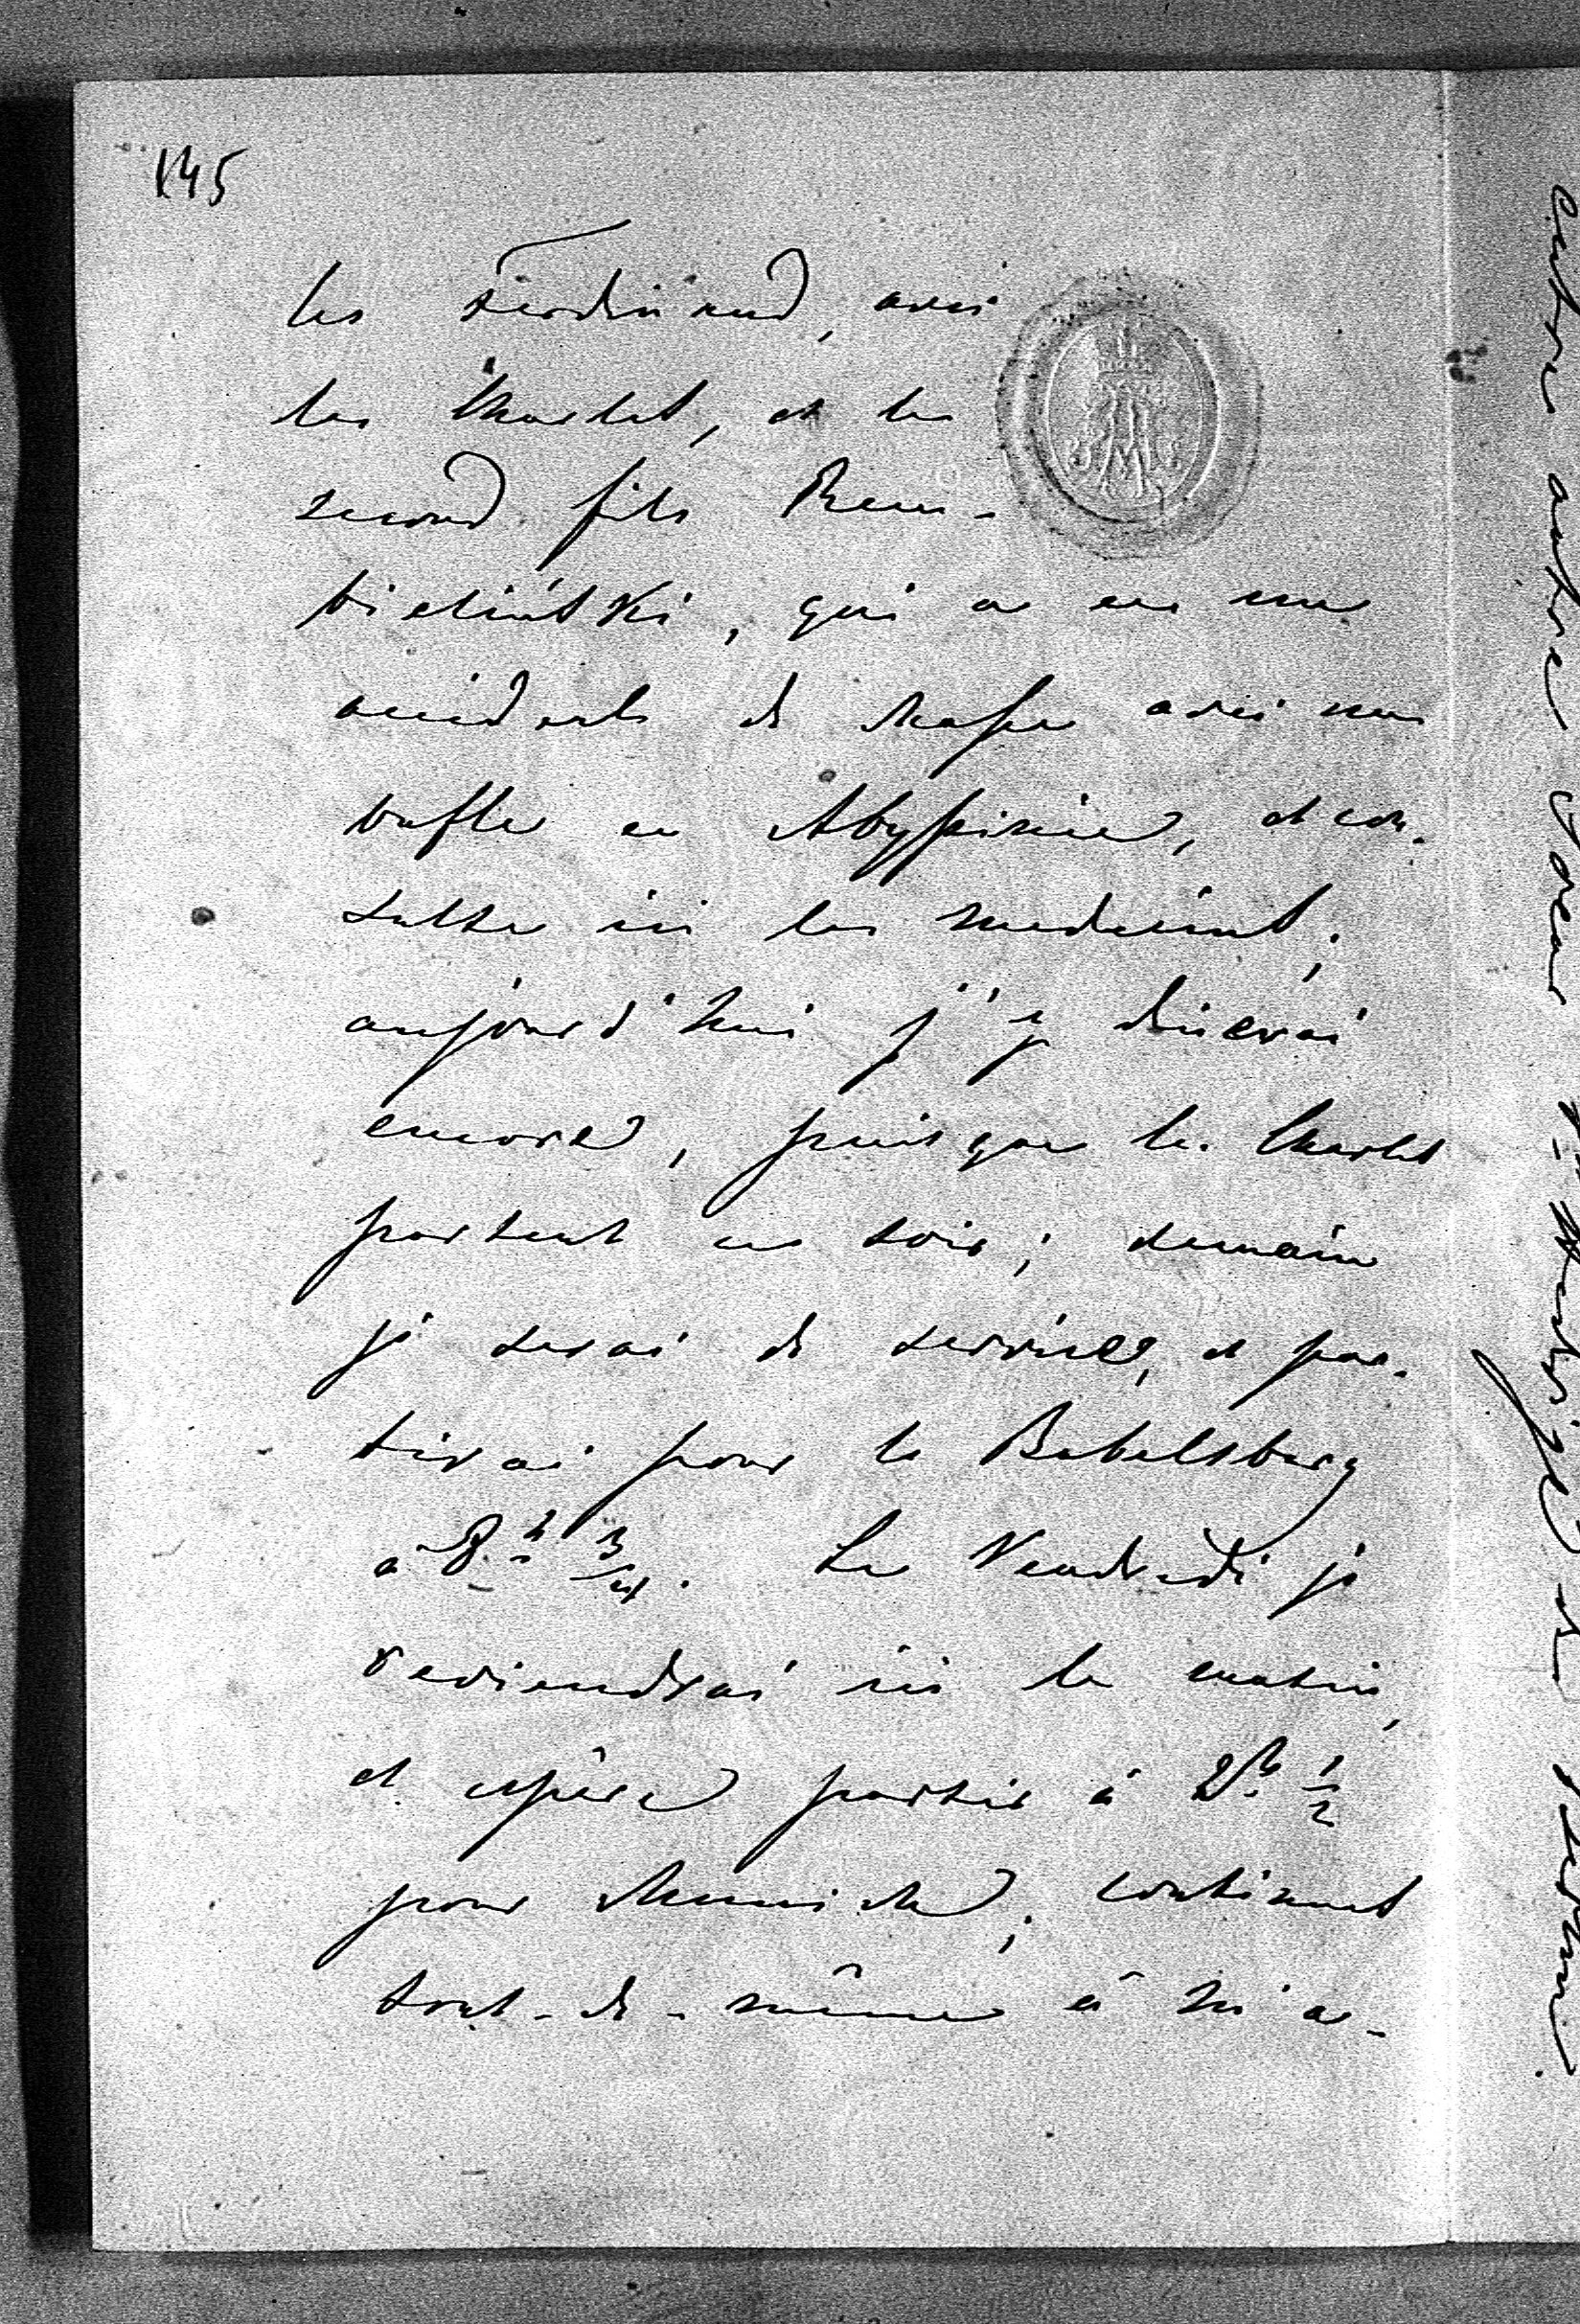 145
les Ferdinand, avec
les Charles, et le
second fils Rem-
bieliński, qui a eu un
accident de chasse avec un
buffle en Abyssinie, et con-
sulte ici les medecins;
aujourd'hui j'y dinerai
encore, puisque les Charles
partent ce soir; demain
je serai de service, et par-
tirai pour le Babelsberg
à 8 h 3/4. Le Vendredi je
reviendrai ici le matin,
et espère partir à 2 h 1/2
pour Munich; continues
tout-de-même à m'a-
entre autre